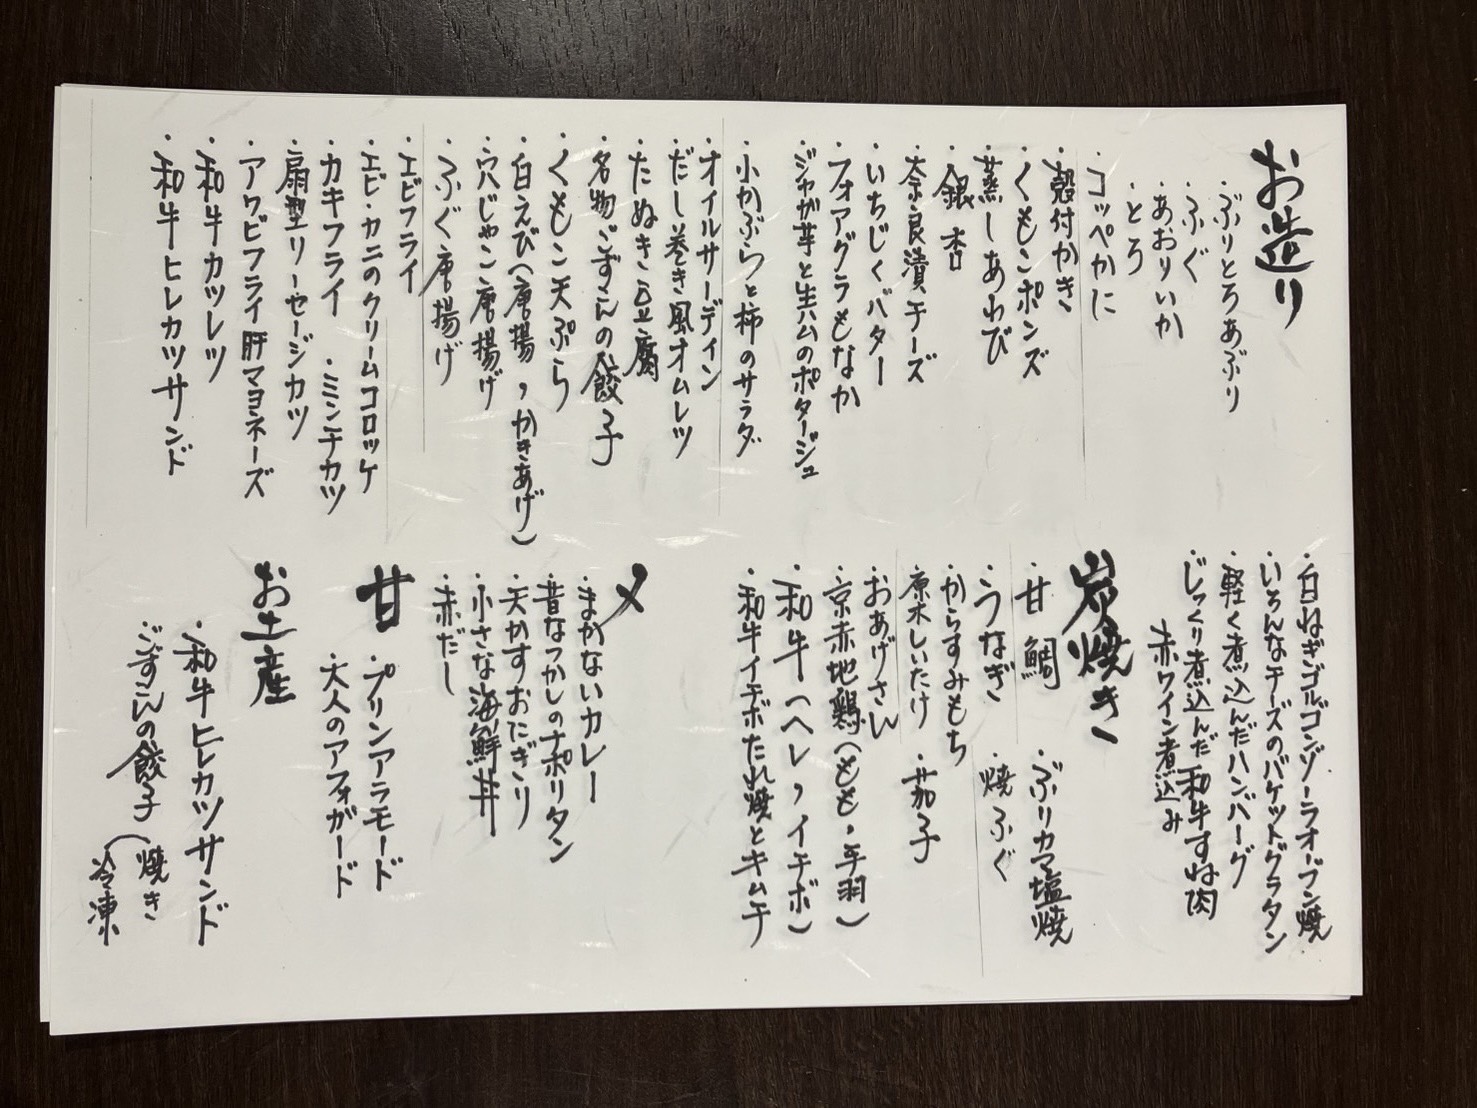 お造り
・ぶりとろあぶり
・ふぐ
・あおりいか
・とろ
・コッペかに
・殻付かき
・くもこポンズ
・蒸しあわび
・銀杏
・奈良漬チーズ
・いちじくバター
・フォアグラもなか
・ジャガ芋と生ハムのポタージュ
・小かぶらと柿のサラダ
・オイルサーディン
・だし巻き風オムレツ
・たぬき豆腐
・名物ごずこんの餃子
・くもこ天ぷら
・白えび(唐揚、かきあげ)
・穴じゃこ唐揚げ
・ふぐ唐揚げ
・エビフライ
・エビ・カニのクリームコロッケ
・カキフライ ・ミンチカツ
・扇型リーセージカツ
・アワビフライ肝マヨネーズ
・和牛カツレツ
・和牛ヒレカツサンド
・白ねぎゴルゴンゾーラオーブン焼
・いろんなチーズのバケットグラタン
・軽く煮込んだハンバーグ
・じっくり煮込んだ和牛すね肉
赤ワイン煮込み
炭焼き
・甘鯛 ・ぶりカマ塩焼
・うなぎ ・焼ふぐ
・からすみもち
・原木しいたけ ・茄子
・おあげさん
・京赤地鶏(もも・手羽)
・和牛(ヘレ、イチボ)
・和牛イチボたれ焼とキムチ
〆
・まかないカレー
・昔なつかしのナポリタン
・天かすおにぎり
・小さな海鮮丼
・赤だし
甘 ・プリンアラモード
・大人のアフォガード
お土産
・和牛ヒレカツサンド
・ごずこんの餃子(焼き
冷凍